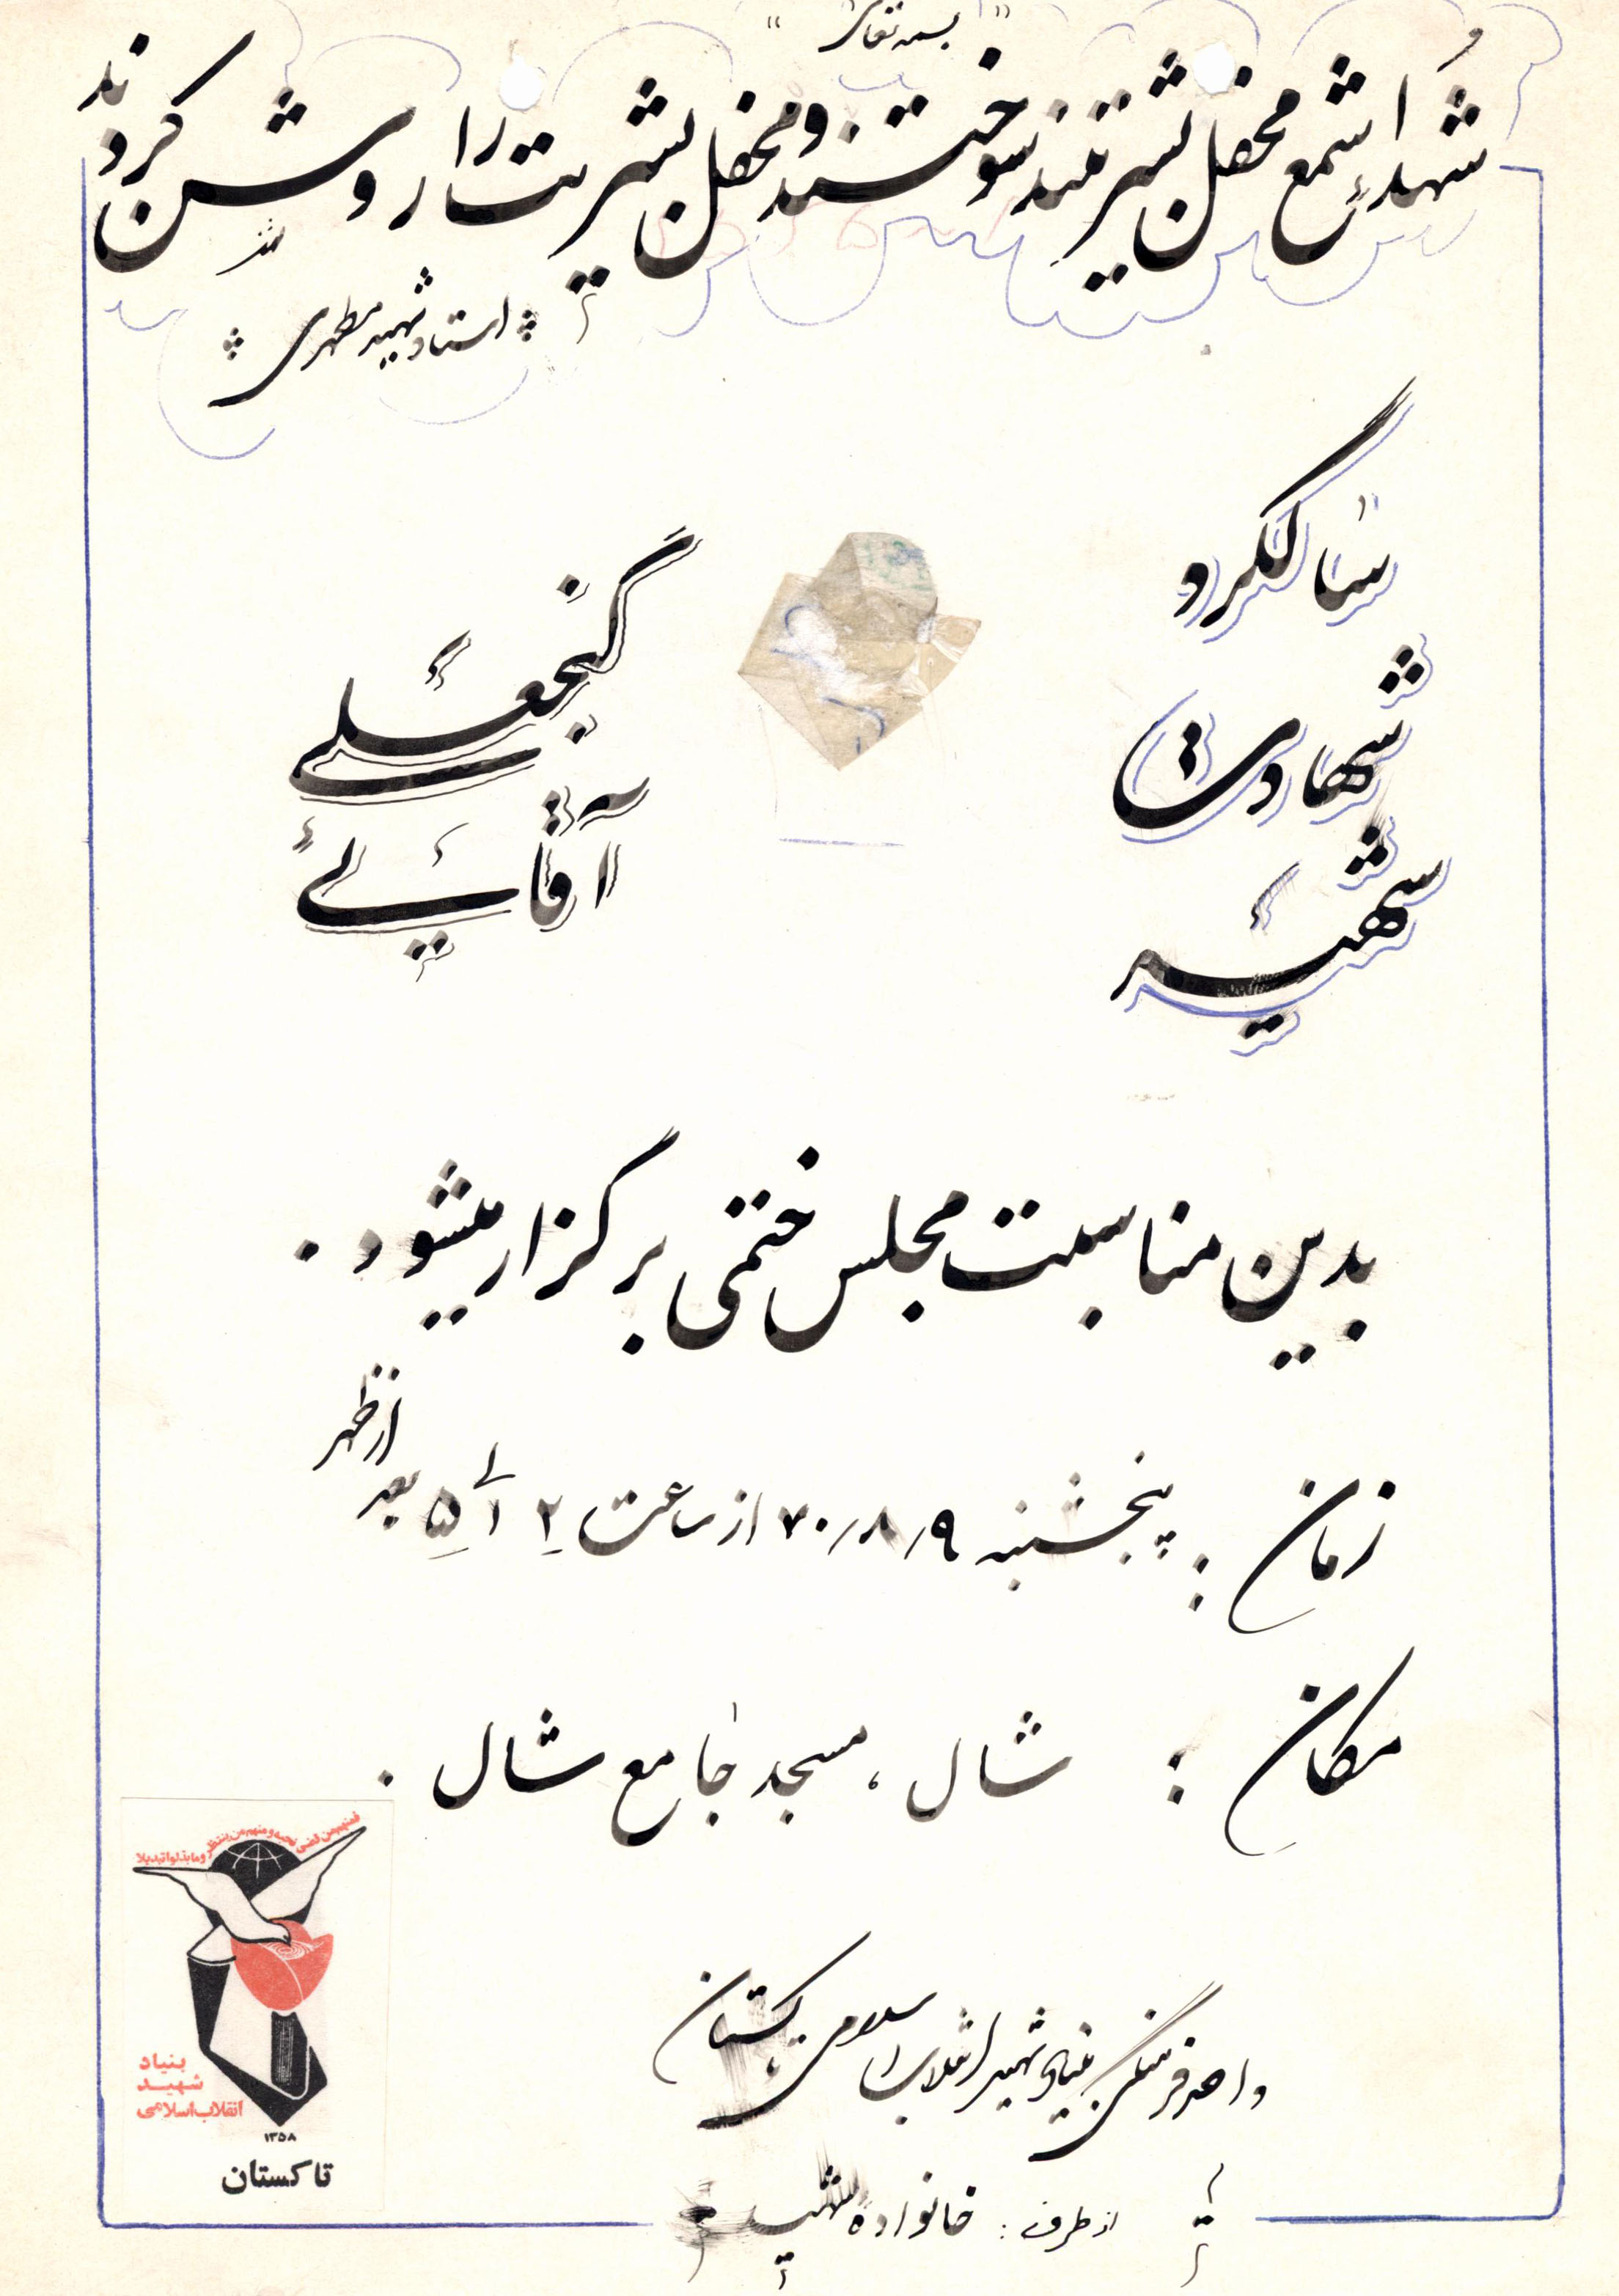 "بسمه تعالی"
شهدا شمع محفل بشریتند سوختند و محفل بشریت را روشن کردند
استاد شهید مطهری
سالگرد
شهادت
شهید
گنجعلی
آقایی
بدین مناسبت مجلس ختمی برگزار میشود.
زمان : پنجشنبه ۷۰/۸/۹ از ساعت ۲ الی ۵ بعد از ظهر
مکان : شال ، مسجد جامع شال .
فمنهم من قضی نحبه و منهم من ینتظر و ما بدلوا تبدیلا
بنیاد
شهید
انقلاب اسلامی
۱۳۵۸
تاکستان
واحد فرهنگی بنیاد شهید انقلاب اسلامی تاکستان
از طرف : خانواده شهید